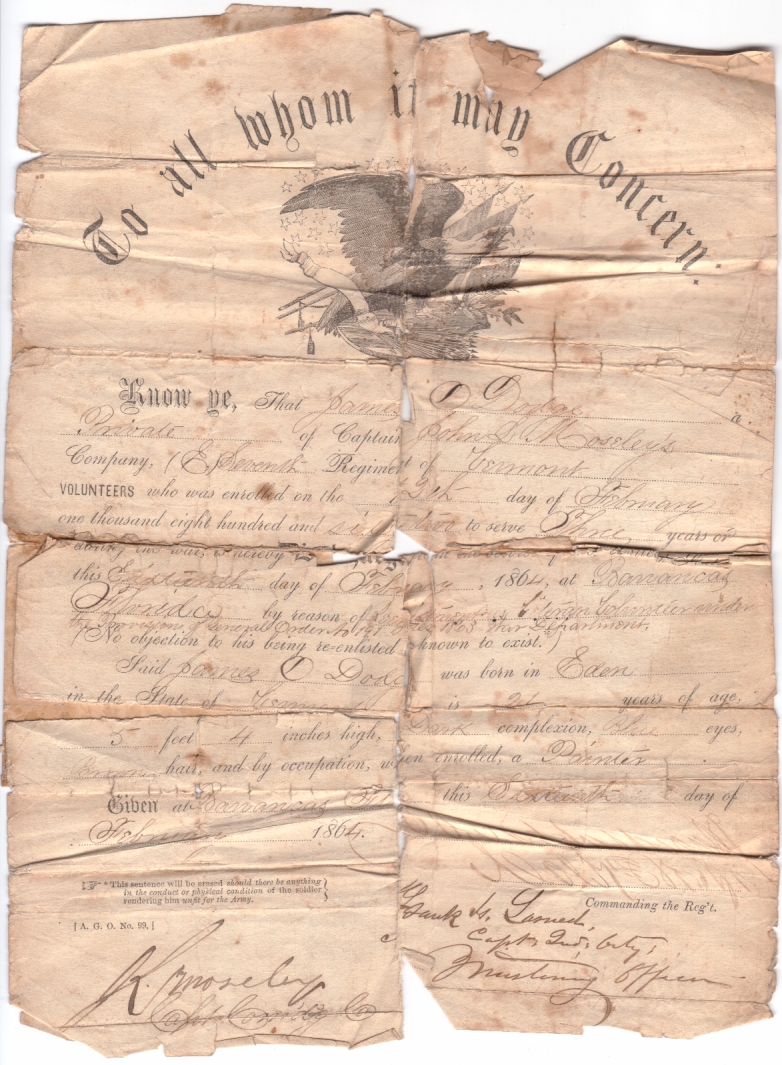 To all whom it may Concern:
Know ye, That James O Dodge a
Private of Captain John S Moseley's
Company, (E,) Seventh Regiment of Vermont
VOLUNTEERS who was enrolled on the 12th day of February
one thousand eight hundred and sixty two to serve Three years or
during the war, is hereby
this Sixteenth day of February, 1864, at Barrancas
Florida by reason of Veteran Volunteer under
the provisions of General Order No 191 1863 War Department.
(No objection to his being re-enlisted known to exist.)
Said James O Dodge was born in Eden
in the State of Vermont is 21 years of age,
5 feet 4 inches high, Dark complexion, Blue eyes,
Brown hair, and by occupation, when enrolled, a Painter.
Given at Barrancas Fl this Sixteenth day of
February 1864.
* This sentence will be erased should there be anything
in the conduct or physical condition of the soldier
rendering him unfit for the Army.
Commanding the Reg't.
[A. G. O. No. 99.]
Frank H. Larned,
Capt.
Mustering Officer
Moseley
Capt Com'd'g Co